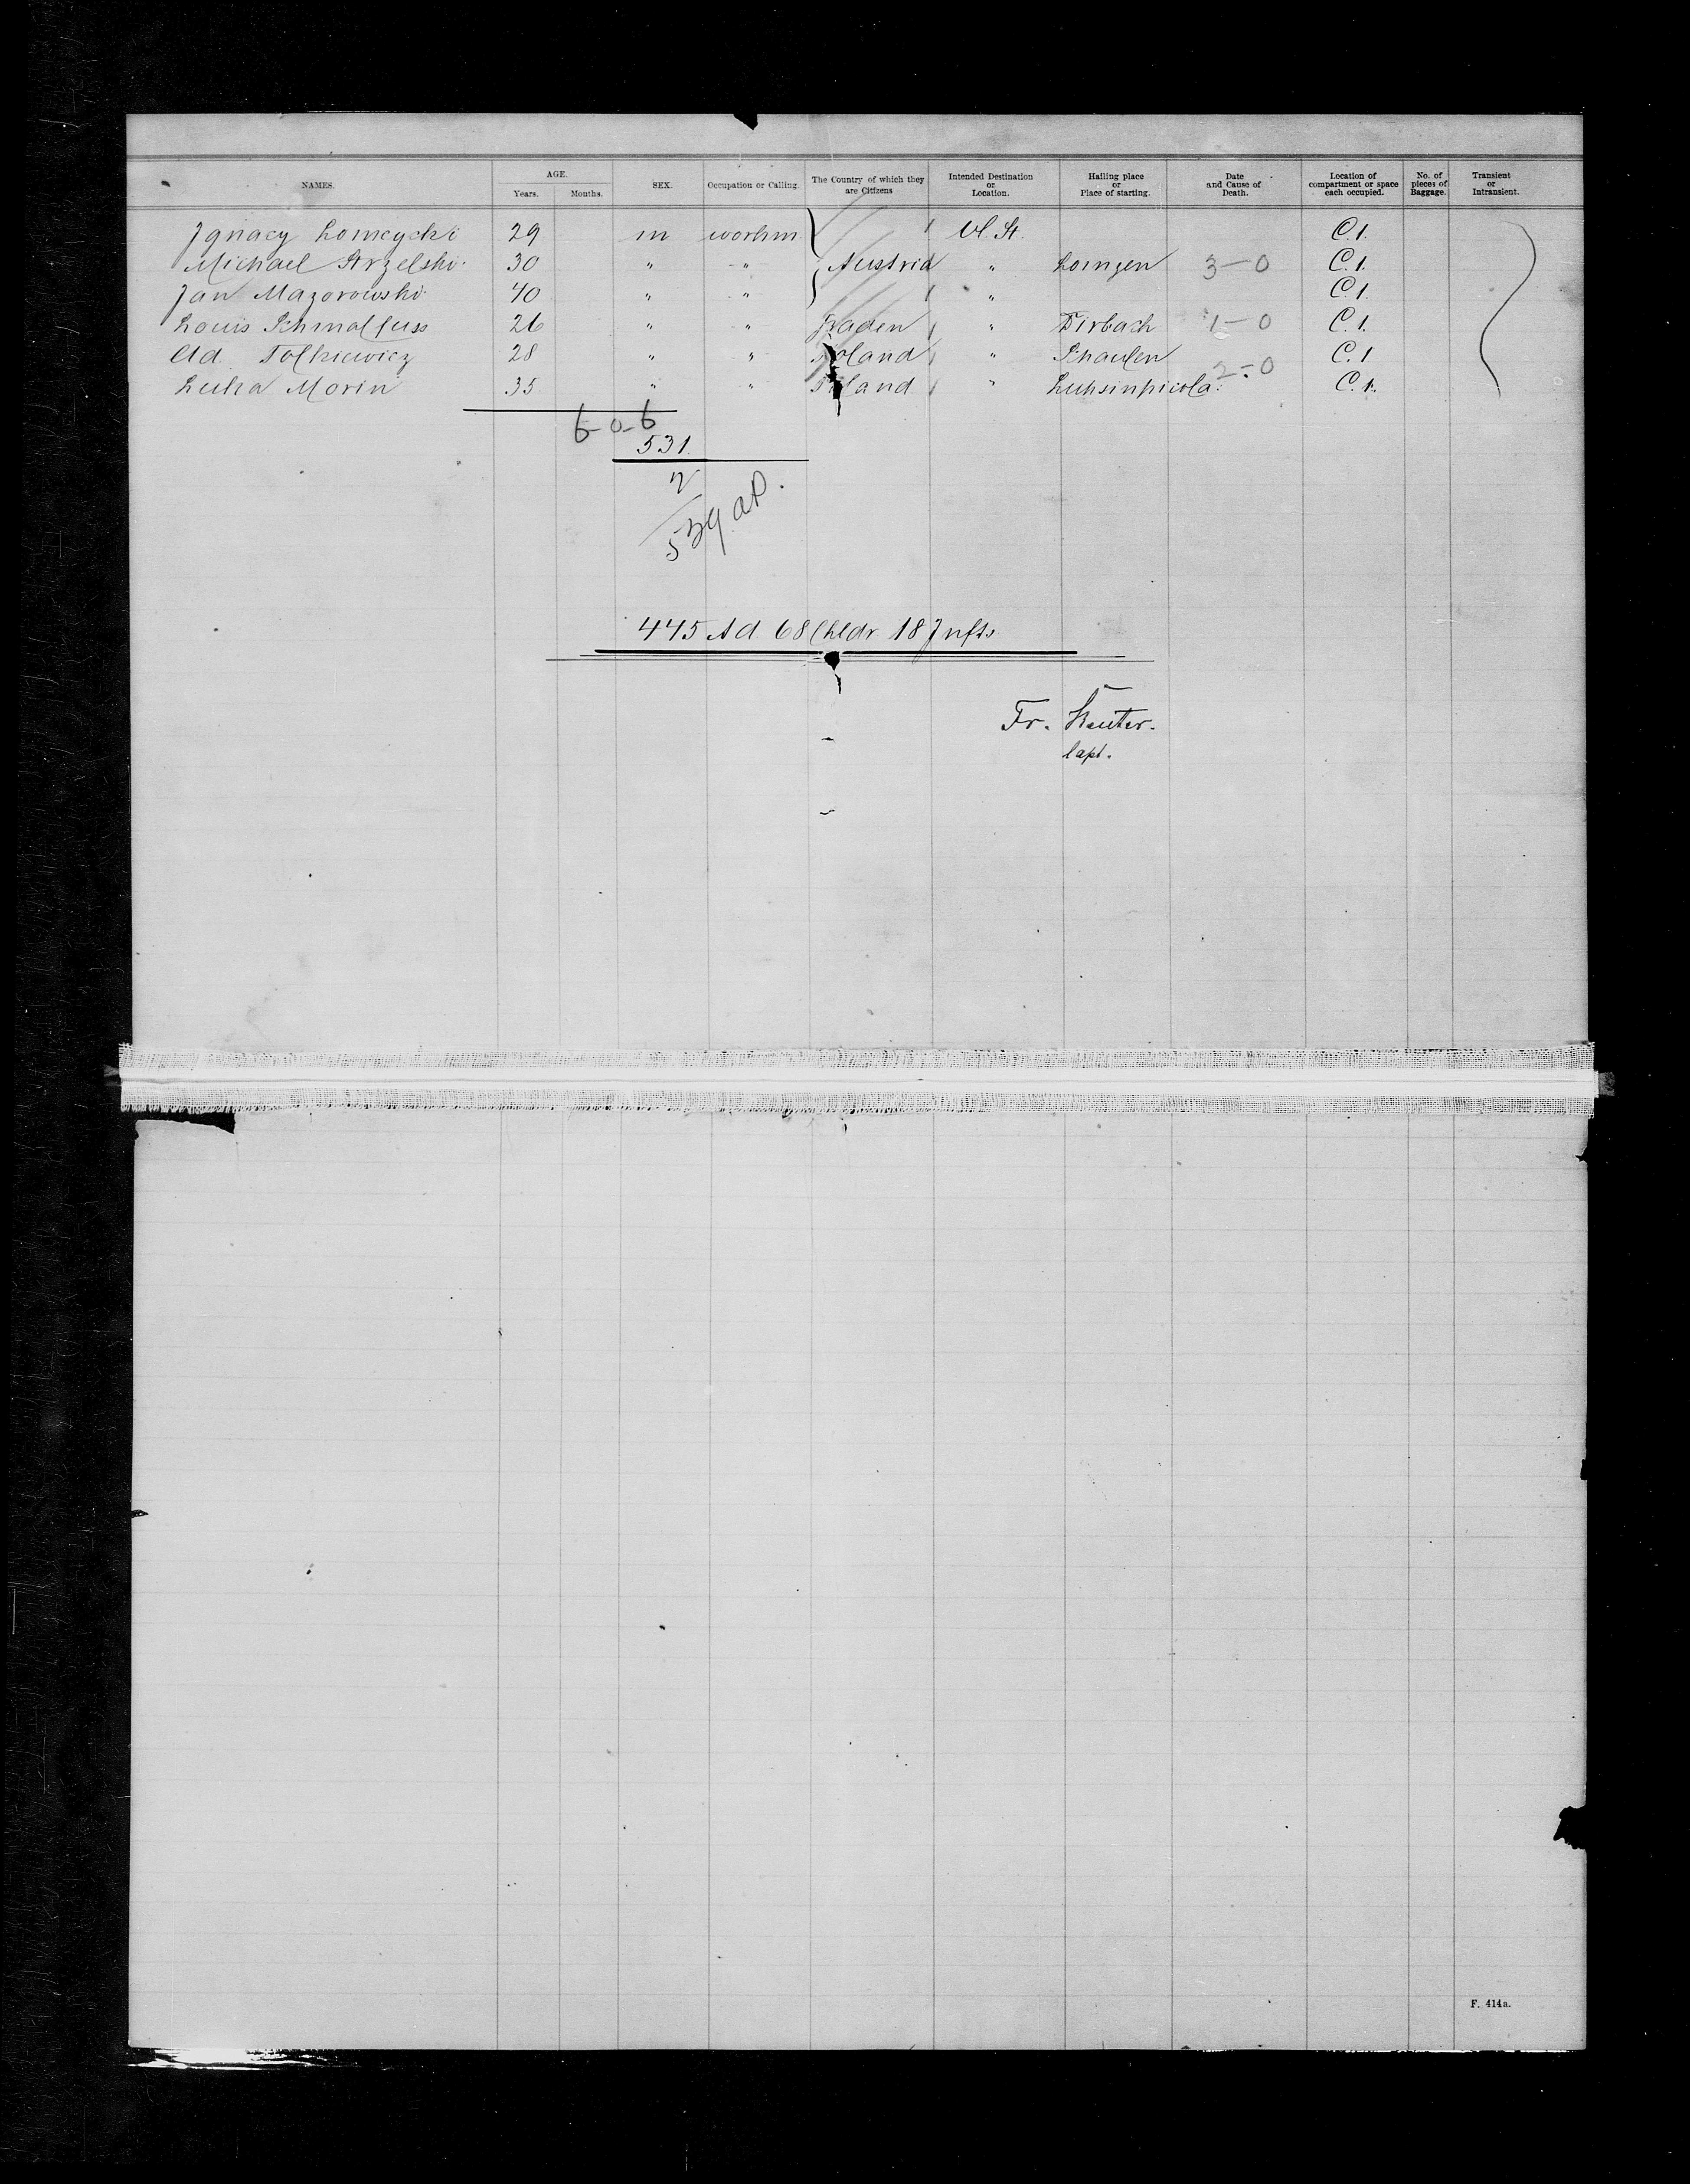 NAMES. AGE. Years. Months. SEX. Occupation or Calling. The Country of which they are Citizens Intended Destination or Location. Hailing place or Place of starting. Date and Cause of Death. Location of compartment or space each occupied. No. of pieces of Baggage. Transient or Intransient.
Ignacy Lomcycki 29 m workm 1 U. St. C. 1.
Michael Strzelski 30 " " Austria " Lomzen 3-0 C. 1.
Jan Mazorowski 40 " " 1 " C. 1.
Louis Schmalfuss 26 " " Baden 1 " Firbach 1-0 C. 1.
Ad. Tolkiewicz 28 " " Poland 1 " Schaulen C. 1
Luka Morin 35 " " Poland 1 " Luhsinpicola 2-0 C. 1.
6-0-6
531
539
445 Ad. 68 Chldr. 18 Infts
Fr. Reuter.
Capt.
F. 414a.